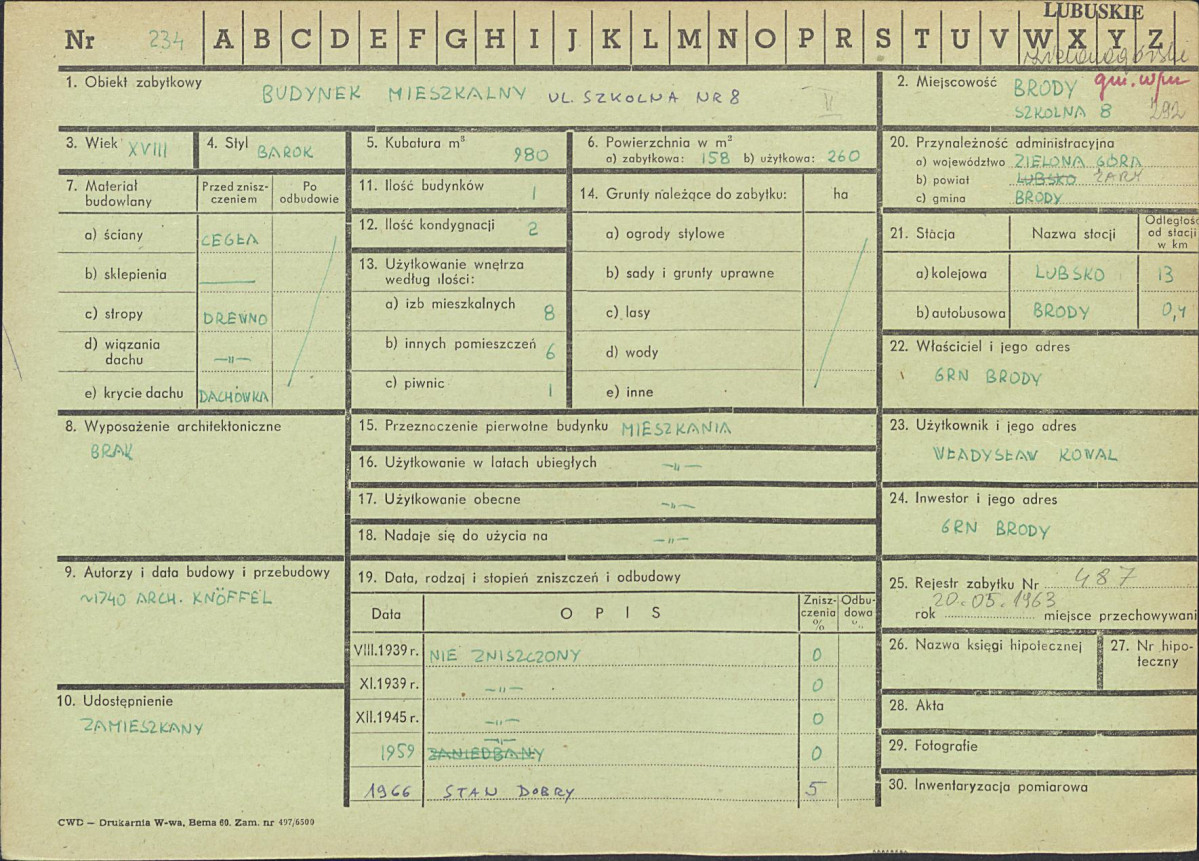 LUBUSKIE
Nr 234 A B C D E F G H I J K L M N O P R S T U V W X Y Z
zielonogórskie
1. Obiekt zabytkowy
BUDYNEK MIESZKALNY UL. SZKOLNA NR 8 V
2. Miejscowość BRODY gm. wm
SZKOLNA 8 292
3. Wiek XVIII
4. Styl BAROK
5. Kubatura m³
980
6. Powierzchnia w m²
a) zabytkowa: 158 b) użytkowa: 260
20. Przynależność administracyjna
a) województwo ZIELONA GÓRA
b) powiat LUBSKO ŻARY
c) gmina BRODY
7. Materiał budowlany
Przed zniszczeniem
Po odbudowie
a) ściany CEGŁA
b) sklepienia —
c) stropy DREWNO
d) wiązania dachu —„—
e) krycie dachu DACHÓWKA
11. Ilość budynków 1
12. Ilość kondygnacji 2
13. Użytkowanie wnętrza
według ilości:
a) izb mieszkalnych 8
b) innych pomieszczeń 6
c) piwnic 1
14. Grunty należące do zabytku: ha
a) ogrody stylowe
b) sady i grunty uprawne
c) lasy
d) wody
e) inne
21. Stacja Nazwa stacji Odległość od stacji w km
a) kolejowa LUBSKO 13
b) autobusowa BRODY 0,4
22. Właściciel i jego adres
GRN BRODY
8. Wyposażenie architektoniczne
BRAK
15. Przeznaczenie pierwotne budynku MIESZKANIA
16. Użytkowanie w latach ubiegłych —„—
17. Użytkowanie obecne —„—
18. Nadaje się do użycia na —„—
23. Użytkownik i jego adres
WŁADYSŁAW KOWAL
24. Inwestor i jego adres
GRN BRODY
9. Autorzy i data budowy i przebudowy
~1740 ARCH. KNÖFFEL
10. Udostępnienie
ZAMIESZKANY
19. Data, rodzaj i stopień zniszczeń i odbudowy
Data OPIS Zniszczenia % Odbudowa %
VIII.1939 r. NIE ZNISZCZONY 0
XI.1939 r. —„— 0
XII.1945 r. —„— 0
1959 —„— ZANIEDBANY 0
1966 STAN DOBRY 5
25. Rejestr zabytku Nr 487
20.05.1963
rok miejsce przechowywani
26. Nazwa księgi hipotecznej
27. Nr hipoteczny
28. Akta
29. Fotografie
30. Inwentaryzacja pomiarowa
CWD — Drukarnia W-wa, Bema 60. Zam. nr 497/6500